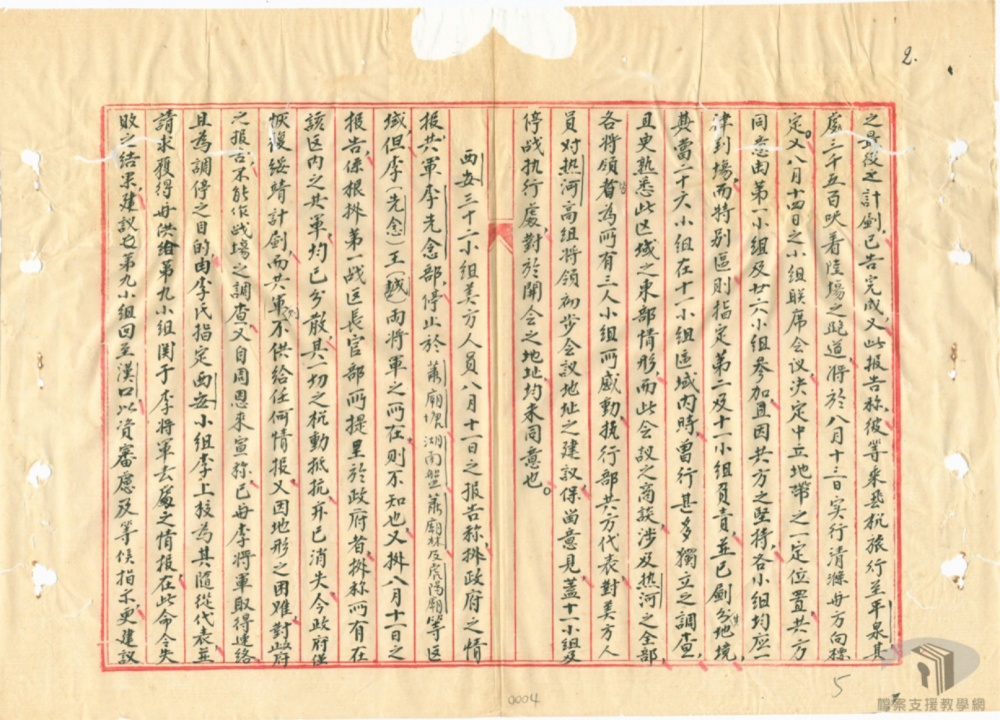 2.
之最後之計劃，已告完成，又此報告称，彼等乘飛机旅行至平泉，其
處三千五百呎着陸場之跑道，將於八月十三日实行清滌毋方向標
定。又八月十四日之小組联席会议决定中立地帶之一定位置，共方
同意由第一小組及廿六小組參加，且因共方之堅持，各小組均应一
律到場，而特别區則指定第二及十一小組負責，並已劃分地境，
其當二十六小組在十一小組區域内時，曾行甚多獨立之調查，
且更熟悉此区域之東部情形，而此会议之商談，涉及热河之全部
各將領者，為所有三人小組所感動，执行部共方代表，對美方人
員对热河高組將領初步会議地址之建議，保留意見，蓋十一小組及
停战执行處，對於開会之地址，均未同意也。
西安三十二小組美方人員八月十一日之报告称，拠政府之情
报，共軍李先念部，停止於 湖南 等区
域，但，李（先念）王（越）兩將軍之所在，則不知也，又拠八月十一日之
报告，係根拠第一战区長官部所提呈於政府者，拠称所有在
該区内之共軍，均已分散，其一切之抗動抵抗，亦已消失，今政府僅
恢復綏靖計劃，而共軍不供給任何情报，又因地形之困难，對政府
之报告，不能作战場之調查，又自周恩来宣称，已毋李將軍取得連絡
且為調停之目的，由李氏指定西安小組李上校為其隨從代表，並
請求獲得毋供给第九小組関于李將軍去處之情报，在此命令失
败之結果，建議七第九小組回至漢口，以資審慮及等候指示，更建議
0004
5
檔案支援教學網